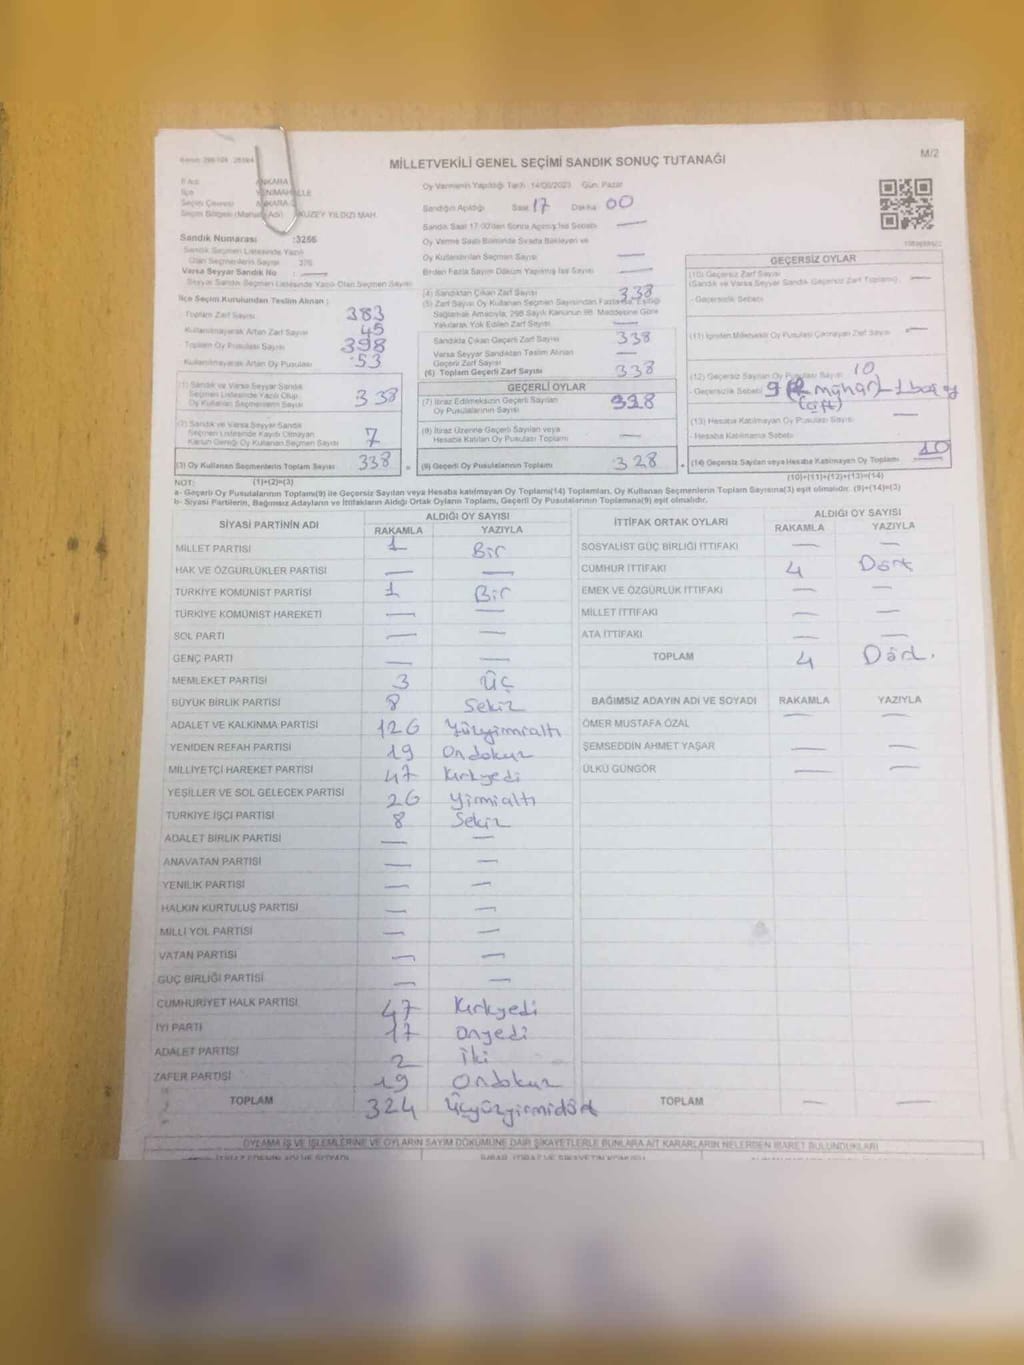 MİLLETVEKİLİ GENEL SEÇİMİ SANDIK SONUÇ TUTANAĞI
M/2
İl Adı ANKARA
İlçe
Seçim Çevresi ANKARA
Seçim Bölgesi KUZEY YILDIZI MAH.
Oy Vermenin Yapıldığı Tarih : 14/05/2023 Gün: Pazar
Sandığın Açıldığı Saat 17 Dakika 00
Sandık Saat 17:00'den Sonra Açılmış İse Sebebi —
Sandık Numarası :3266
Sandık Seçmen Listesinde Yazılı
Olan Seçmenlerin Sayısı
Varsa Seyyar Sandık No : —
Seyyar Sandık Seçmen Listesinde Yazılı Olan Seçmen Sayısı
Oy Verme Saati Bitiminde Sırada Bekleyen ve
Oy Kullandırılan Seçmen Sayısı —
Birden Fazla Sayım Döküm Yapılmış İse Sayısı —
İlçe Seçim Kurulundan Teslim Alınan :
Toplam Zarf Sayısı 383
Kullanılmayarak Artan Zarf Sayısı 45
Toplam Oy Pusulası Sayısı 398
Kullanılmayarak Artan Oy Pusulası 53
(1) Sandık ve Varsa Seyyar Sandık
Seçmen Listesinde Yazılı Olup
Oy Kullanan Seçmenlerin Sayısı 338
(2) Sandık ve Varsa Seyyar Sandık
Seçmen Listesinde Kaydı Olmayan
Kanun Gereği Oy Kullanan Seçmen Sayısı 7
(3) Oy Kullanan Seçmenlerin Toplam Sayısı 338
(4) Sandıktan Çıkan Zarf Sayısı 338
(5) Zarf Sayısı Oy Kullanan Seçmen Sayısından Fazla Eşitliği
Sağlamak Amacıyla, 298 Sayılı Kanunun 98. Maddesine Göre
Yakılarak Yok Edilen Zarf Sayısı —
Sandıkta Çıkan Geçerli Zarf Sayısı 338
Varsa Seyyar Sandıktan Teslim Alınan
Geçerli Zarf Sayısı —
(6) Toplam Geçerli Zarf Sayısı 338
GEÇERLİ OYLAR
(7) İtiraz Edilmeksizin Geçerli Sayılan
Oy Pusulalarının Sayısı 328
(8) İtiraz Üzerine Geçerli Sayılan veya
Hesaba Katılan Oy Pusulası Toplamı —
(9) Geçerli Oy Pusulalarının Toplamı 328
GEÇERSİZ OYLAR
(10) Geçersiz Zarf Sayısı
(Sandık ve Varsa Seyyar Sandık Geçersiz Zarf Toplamı) —
- Geçersizlik Sebebi
(11) İçinden Milletvekili Oy Pusulası Çıkmayan Zarf Sayısı —
(12) Geçersiz Sayılan Oy Pusulası Sayısı 10
- Geçersizlik Sebebi 9 mühür 1 boş oy
(çift)
(13) Hesaba Katılmayan Oy Pusulası Sayısı —
- Hesaba Katılmama Sebebi
(14) Geçersiz Sayılan veya Hesaba Katılmayan Oy Toplamı 10
NOT: (1)+(2)=(3) (10)+(11)+(12)+(13)=(14)
a- Geçerli Oy Pusulalarının Toplamı(9) ile Geçersiz Sayılan veya Hesaba katılmayan Oy Toplamı(14) Toplamları, Oy Kullanan Seçmenlerin Toplam Sayısına(3) eşit olmalıdır. (9)+(14)=(3)
b- Siyasi Partilerin, Bağımsız Adayların ve İttifakların Aldığı Ortak Oyların Toplamı, Geçerli Oy Pusulalarının Toplamına(9) eşit olmalıdır.
SİYASİ PARTİNİN ADI ALDIĞI OY SAYISI
RAKAMLA YAZIYLA
MİLLET PARTİSİ 1 Bir
HAK VE ÖZGÜRLÜKLER PARTİSİ — —
TÜRKİYE KOMÜNİST PARTİSİ 1 Bir
TÜRKİYE KOMÜNİST HAREKETİ — —
SOL PARTİ — —
GENÇ PARTİ — —
MEMLEKET PARTİSİ 3 Üç
BÜYÜK BİRLİK PARTİSİ 8 Sekiz
ADALET VE KALKINMA PARTİSİ 126 Yüzyirmialtı
YENİDEN REFAH PARTİSİ 19 Ondokuz
MİLLİYETÇİ HAREKET PARTİSİ 47 Kırkyedi
YEŞİLLER VE SOL GELECEK PARTİSİ 26 Yirmialtı
TÜRKİYE İŞÇİ PARTİSİ 8 Sekiz
ADALET BİRLİK PARTİSİ — —
ANAVATAN PARTİSİ — —
YENİLİK PARTİSİ — —
HALKIN KURTULUŞ PARTİSİ — —
MİLLİ YOL PARTİSİ — —
VATAN PARTİSİ — —
GÜÇ BİRLİĞİ PARTİSİ — —
CUMHURİYET HALK PARTİSİ 47 Kırkyedi
İYİ PARTİ 17 Onyedi
ADALET PARTİSİ 2 İki
ZAFER PARTİSİ 19 Ondokuz
TOPLAM 324 Üçyüzyirmidört
İTTİFAK ORTAK OYLARI ALDIĞI OY SAYISI
RAKAMLA YAZIYLA
SOSYALİST GÜÇ BİRLİĞİ İTTİFAKI — —
CUMHUR İTTİFAKI 4 Dört
EMEK VE ÖZGÜRLÜK İTTİFAKI — —
MİLLET İTTİFAKI — —
ATA İTTİFAKI — —
TOPLAM 4 Dört.
BAĞIMSIZ ADAYIN ADI VE SOYADI RAKAMLA YAZIYLA
ÖMER MUSTAFA ÖZAL — —
ŞEMSEDDİN AHMET YAŞAR — —
ÜLKÜ GÜNGÖR — —
TOPLAM — —
OYLAMA İŞ VE İŞLEMLERİNE VE OYLARIN SAYIM DÖKÜMÜNE DAİR ŞİKAYETLERLE BUNLARA AİT KARARLARIN NELERDEN İBARET BULUNDUKLARI